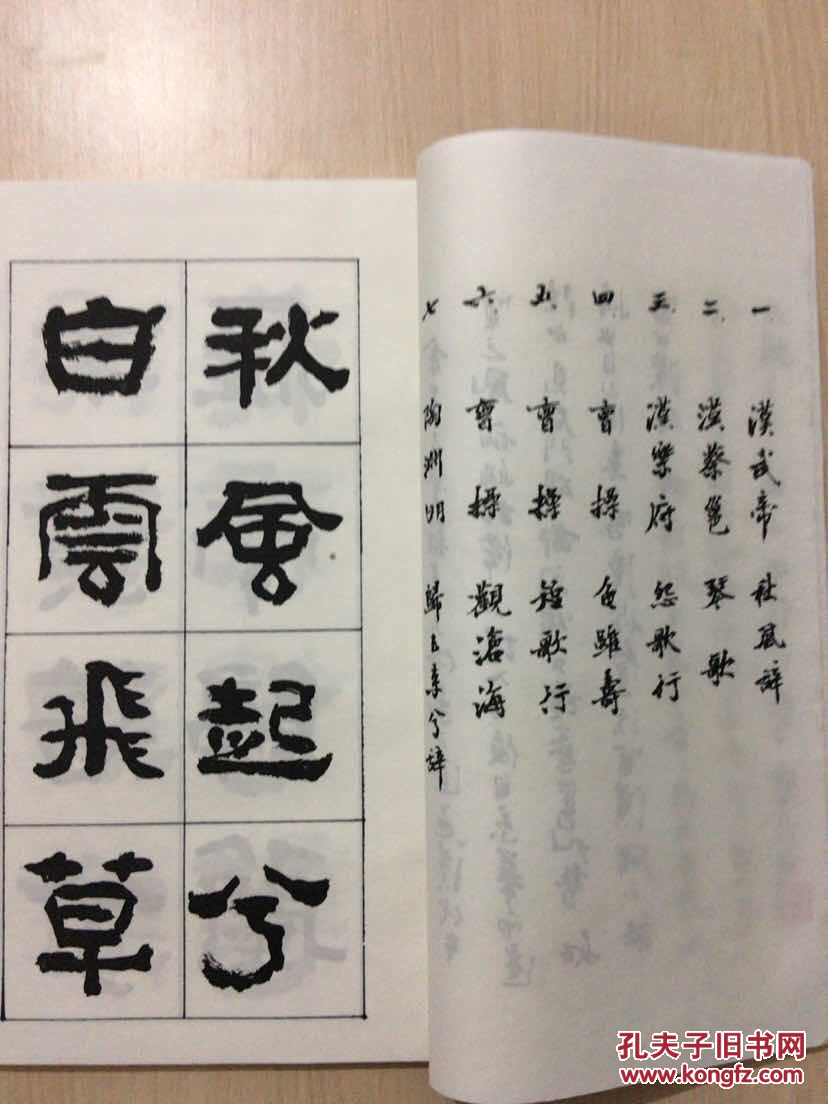 一 漢武帝 秋風辞
二 漢蔡邕 琴歌
三 漢樂府 怨歌行
四 曹操 龜雖壽
五 曹操 短歌行
六 曹操 觀滄海
七 陶淵明 歸去来兮辞
秋風起兮
白雲飛草
孔夫子旧书网
www.kongfz.com